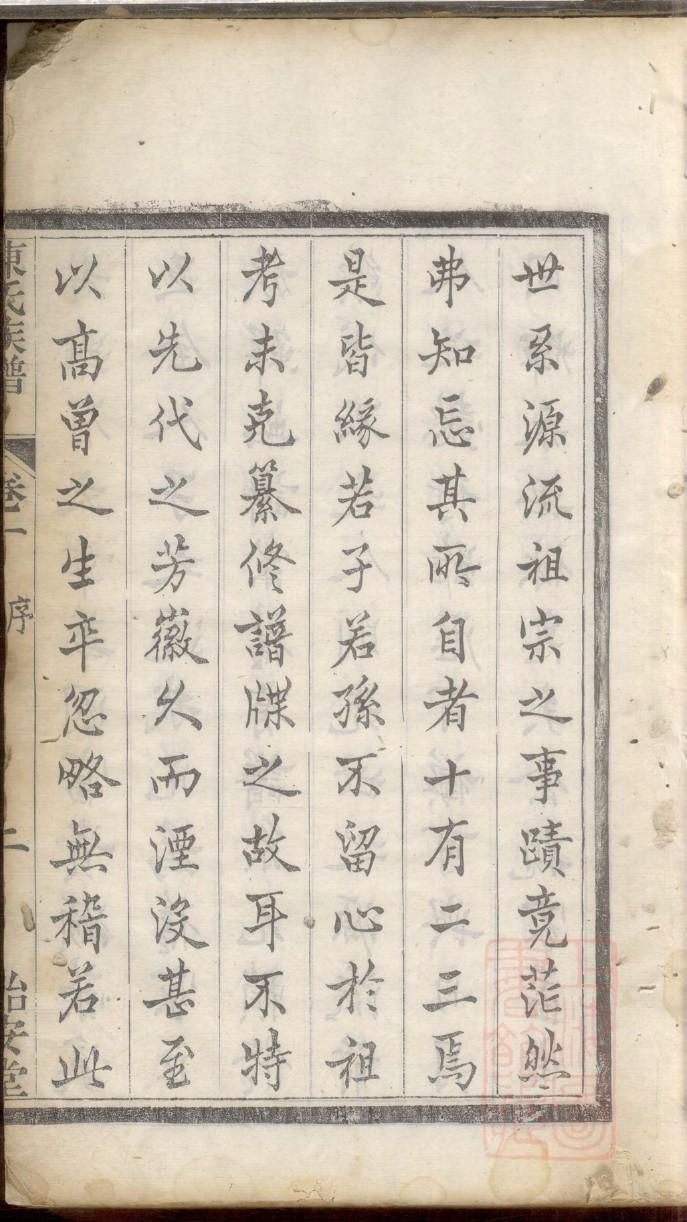 世系源流祖宗之事蹟竟茫然
弗知忘其所自者十有二三焉
是皆緣若子若孫不留心於祖
考未克纂修譜牒之故耳不特
以先代之芳徽久而湮没甚至
以高曾之生卒忽略無稽若此
陳氏族譜
卷一
序
二
怡安堂